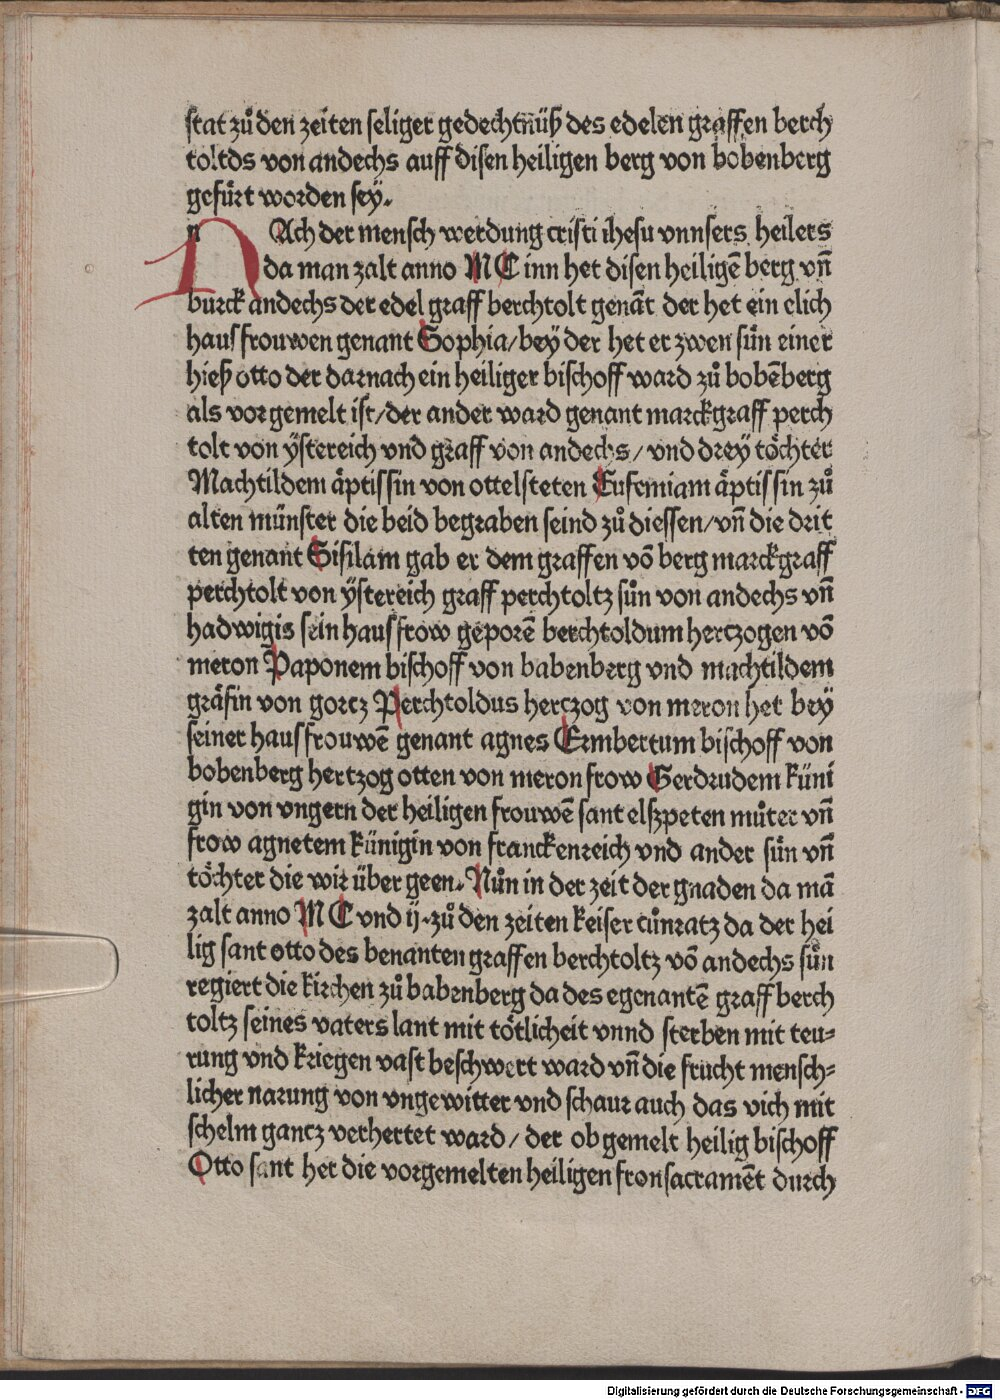 stat zů den zeiten seliger gedechtnüß des edelen graffen berch
toltds von andechs auff disen heiligen berg von bobenberg
gefürt worden sey.
NAch der mensch werdung cristi ihesu vnnsers heilers
da man zalt anno MC inn het disen heiligē berg vn̄
burck andechs der edel graff berchtolt genāt der het ein elich
hausfrouwen genant Sophia/bey der het er zwen sün einer
hieß otto der darnach ein heiliger bischoff ward zů bobēberg
als vorgemelt ist/der ander ward genant marckgraff perch
tolt von ÿstereich vnd graff von andechs/vnd drey töchter
Machtildem äptissin von ottelsteten Eufemiam äptissin zů
alten münster die beid begraben seind zů diessen/vn̄ die drit
ten genant Gisilam gab er dem graffen vō berg marckgraff
perchtolt von ÿstereich graff perchtoltz sün von andechs vn̄
hadwigis sein hausfrow geporē berchtoldum hertzogen vō
meron Paponem bischoff von babenberg vnd machtildem
gräfin von gortz Perchtoldus hertzog von meron het bey
seiner hausfrouwē genant agnes Ermbertum bischoff von
bobenberg hertzog otten von meron frow Gerdrudem küni
gin von vngern der heiligen frouwē sant elszpeten můter vn̄
frow agnetem künigin von franckenreich vnd ander sün vn̄
töchter die wir über geen. Nůn in der zeit der gnaden da mā
zalt anno MC vnd ij. zů den zeiten keiser cůnratz da der hei
lig sant otto des benanten graffen berchtoltz vō andechs sůn
regiert die kirchen zů babenberg da des egenantē graff berch
toltz seines vaters lant mit tötlicheit vnnd sterben mit teu⸗
rung vnd kriegen vast beschwert ward vn̄ die frucht mensch⸗
licher narung von vngewitter vnd schaur auch das vich mit
schelm gantz verhertet ward/ der obgemelt heilig bischoff
Otto sant het die vorgemelten heiligen fronsacramēt durch
Digitalisierung gefördert durch die Deutsche Forschungsgemeinschaft - DFG